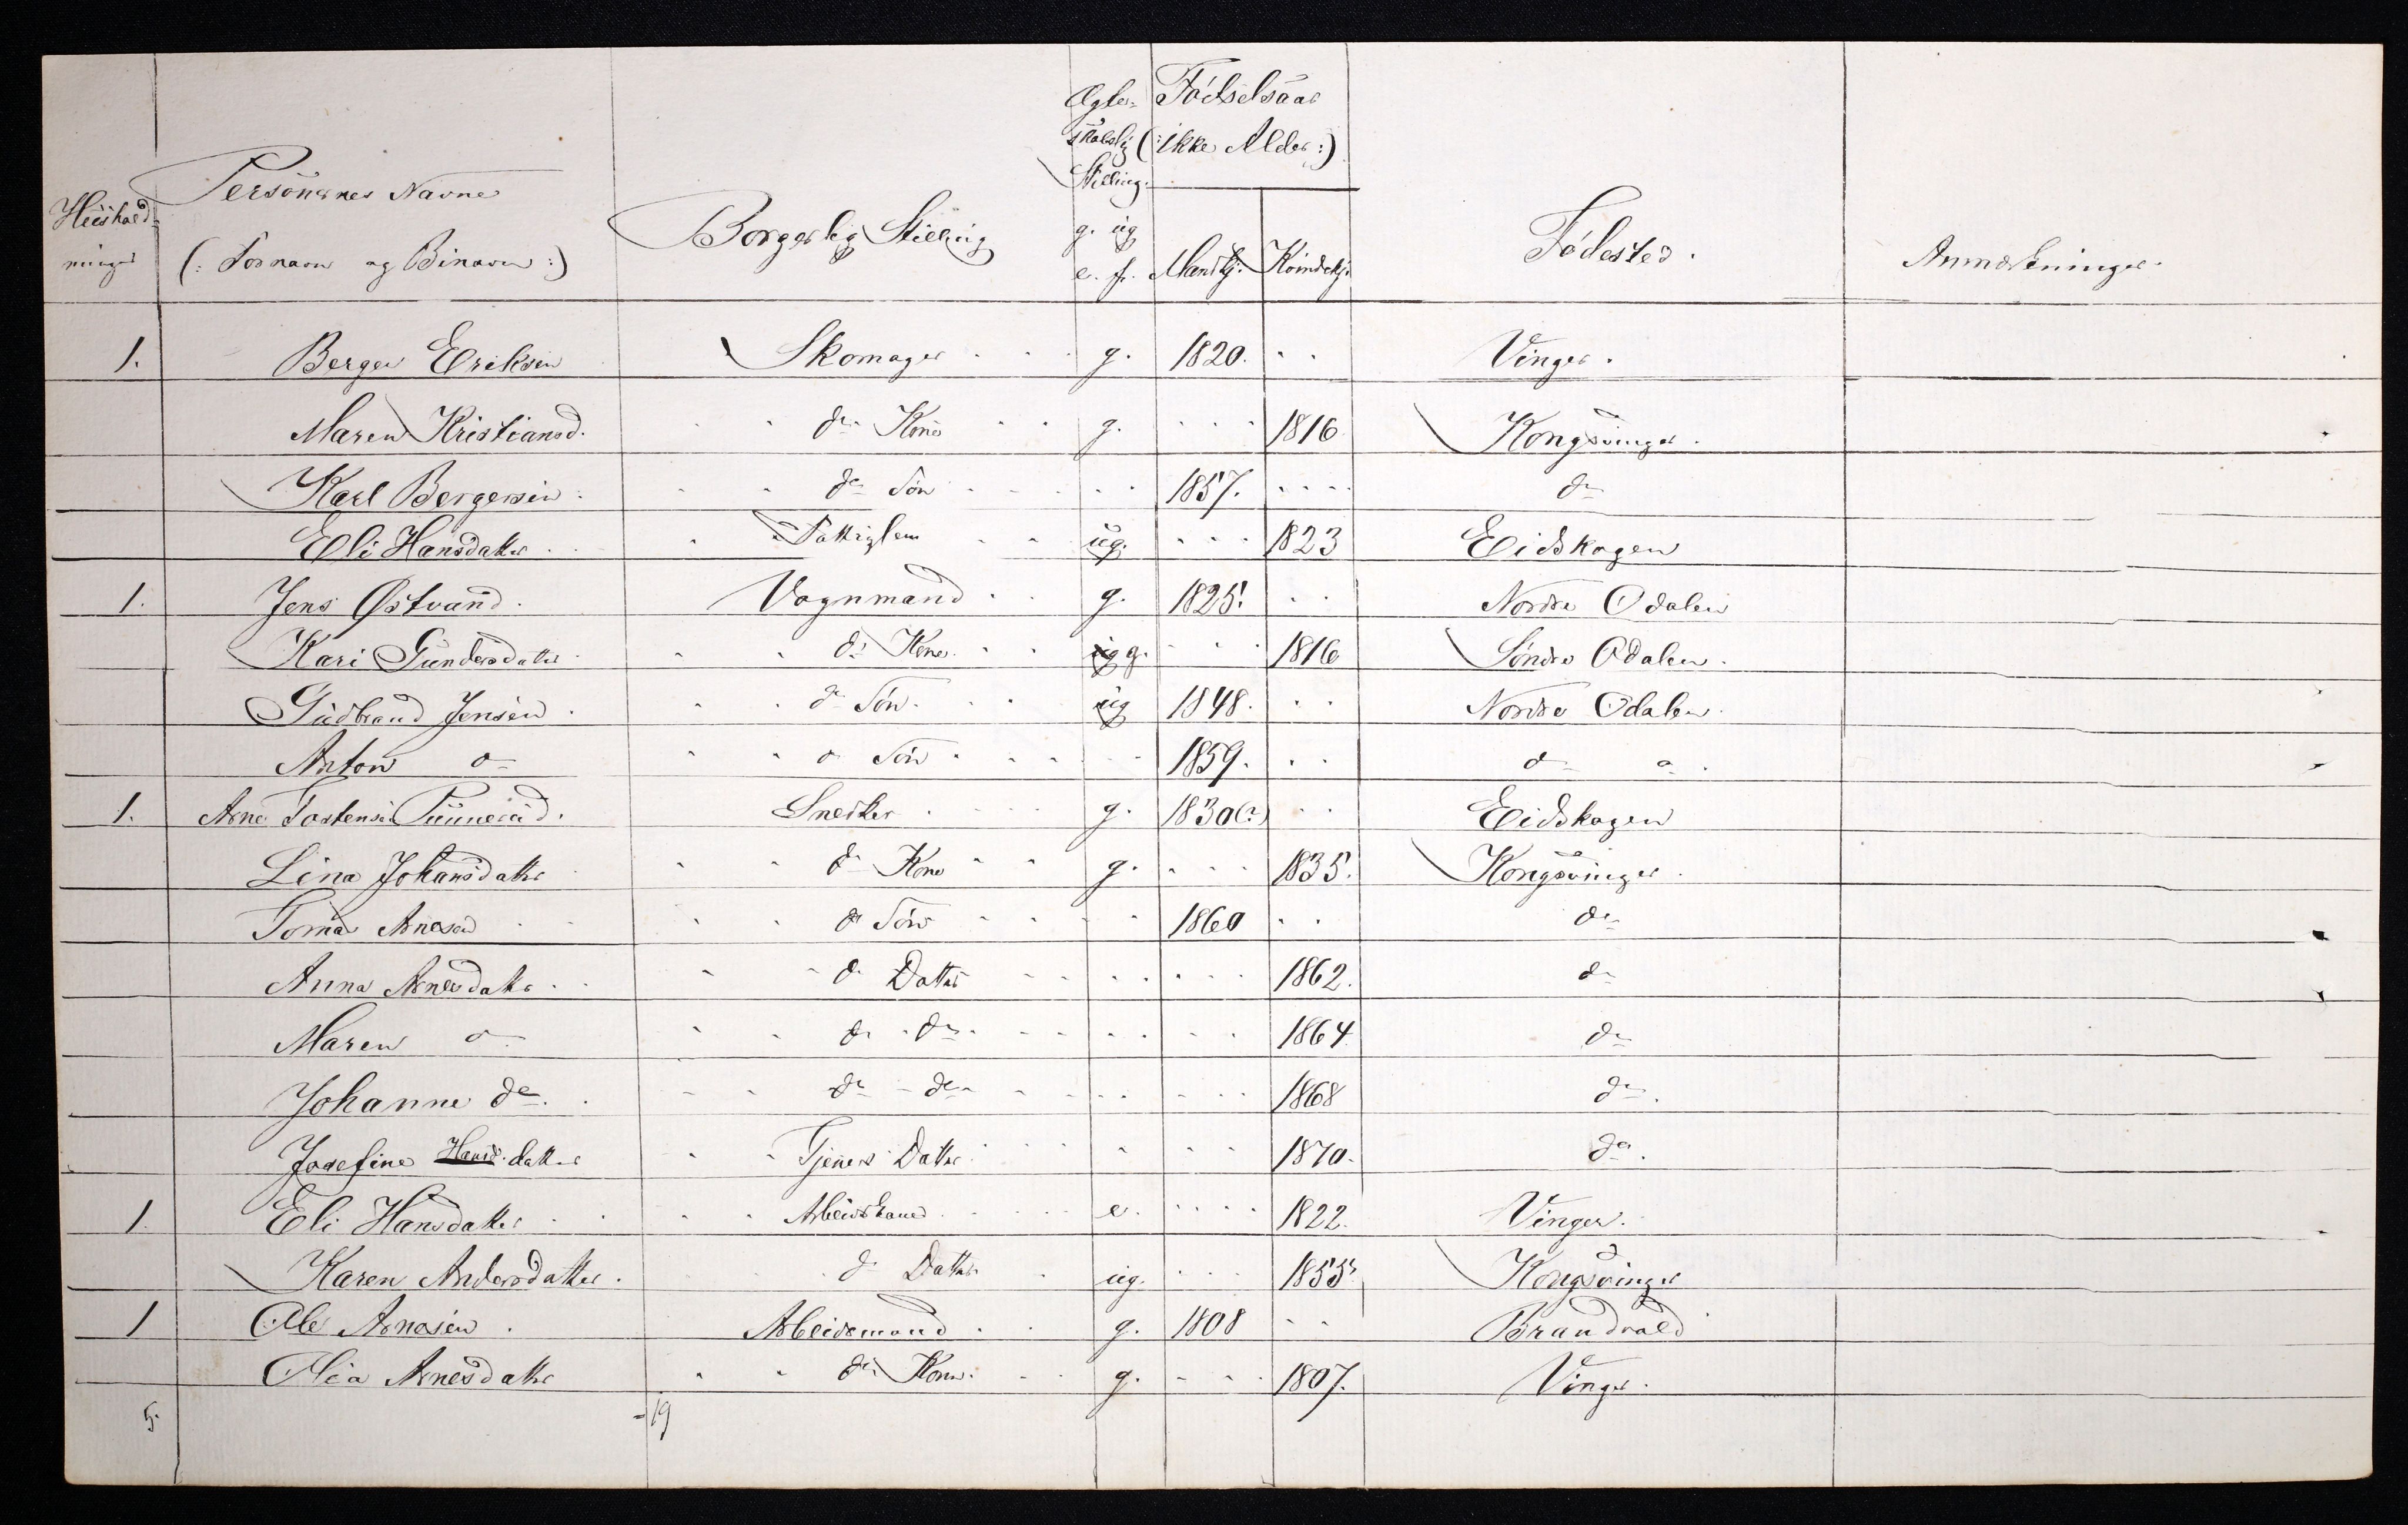 Ægte- Fødselsaar
skabelig (: ikke Alder :)
Stilling.
Huushold- Personernes Navne Borgerlig Stilling g. ug Fødested. Anmærkninger.
ninger (: Fornavn og Binavn :) e. f. Mandkj. Kvindekj.
1. Berger Eriksen Skomager g. 1820. Vinger.
Maren Kristiansd. ds. Kone g. 1816 Kongsvinger.
Karl Bergersen ds Søn 1857. do
Eli Hansdatter Fattiglem ug. 1823 Eidskogen
1. Jens Østvand. Vognmand g. 1825. Nordre Odalen
Kari Gundersdatter ds. Kone g. 1816 Søndre Odalen.
Gudbrand Jensen ds Søn ug 1848. Nordre Odalen.
Anton do d Søn 1859. do do
1. Arne Torstensen Snedker g. 1830(?) Eidskogen
Lina Johansdatter ds Kone g. 1835. Kongsvinger.
Arnesen ds Søn 1860 do
Anna Arnesdatter ds Datter 1862. do
Maren do ds do 1864 do
Johanne do. ds do 1868 do.
Josefine Hansd. datter Tjeners Datter 1870. do.
1. Eli Hansdatter e. 1822. Vinger.
Karen Andersdatter. ds Datter ug. 1855. Kongsvinger
1 Ole Arnesen. Arbeidsmand g. 1808 Brandvold
Olia Arnesdatter ds. Kone. g. 1807. Vinger.
5. 19